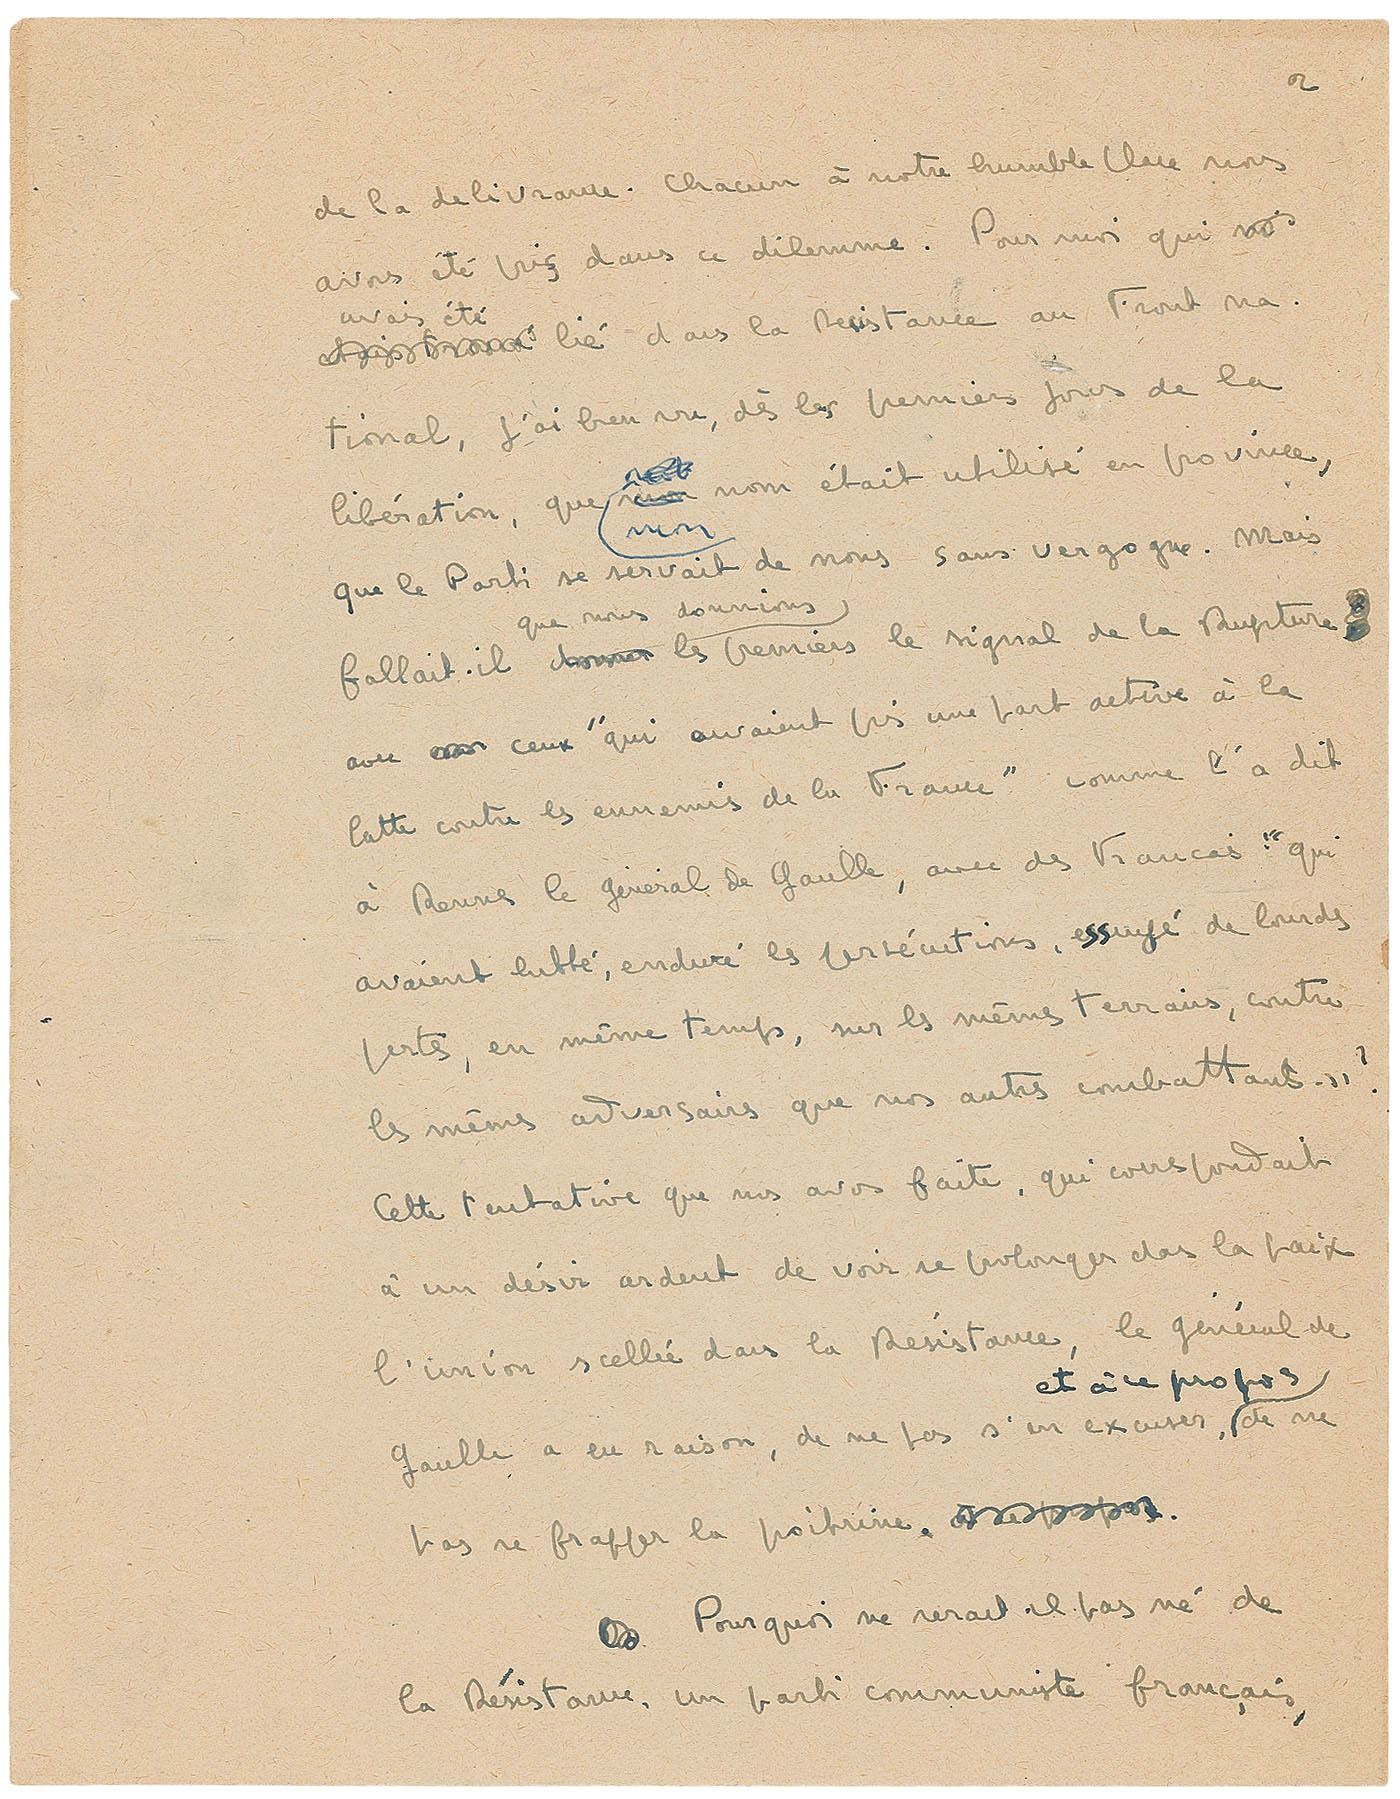 2
de la delivrance. Chacun à notre humble place nous
avons été pris dans ce dilemme. Pour moi qui
avais été
lié dans la Resistance au Front na.
tional, j'ai bien vu, dès les premiers jours de la
libération, que nom était utilisé en province,
mon
que le Parti se servait de nous sans vergogne. Mais
que nous donnions
fallait-il donner les premiers le signal de la Rupture
avec ceux "qui avaient pris une part active à la
lutte contre les ennemis de la France" comme l'a dit
à Rennes le général de Gaulle, avec des Francais : "qui
avaient lutté, enduré les persécutions, essuyé de lourdes
pertes, en même temps, sur les mêmes terrains, contre
les mêmes adversaires que nos autres combattants." ?
Cette tentative que nous avons faite, qui correspondait
à un désir ardent de voir se prolonger dans la paix
l'union scellée dans la Résistance, le général de
et à ce propos
Gaulle a eu raison, de ne pas s'en excuser, de ne
pas se frapper la poitrine.
Pourquoi ne serait-il pas né de
la Résistance, un parti communiste français,